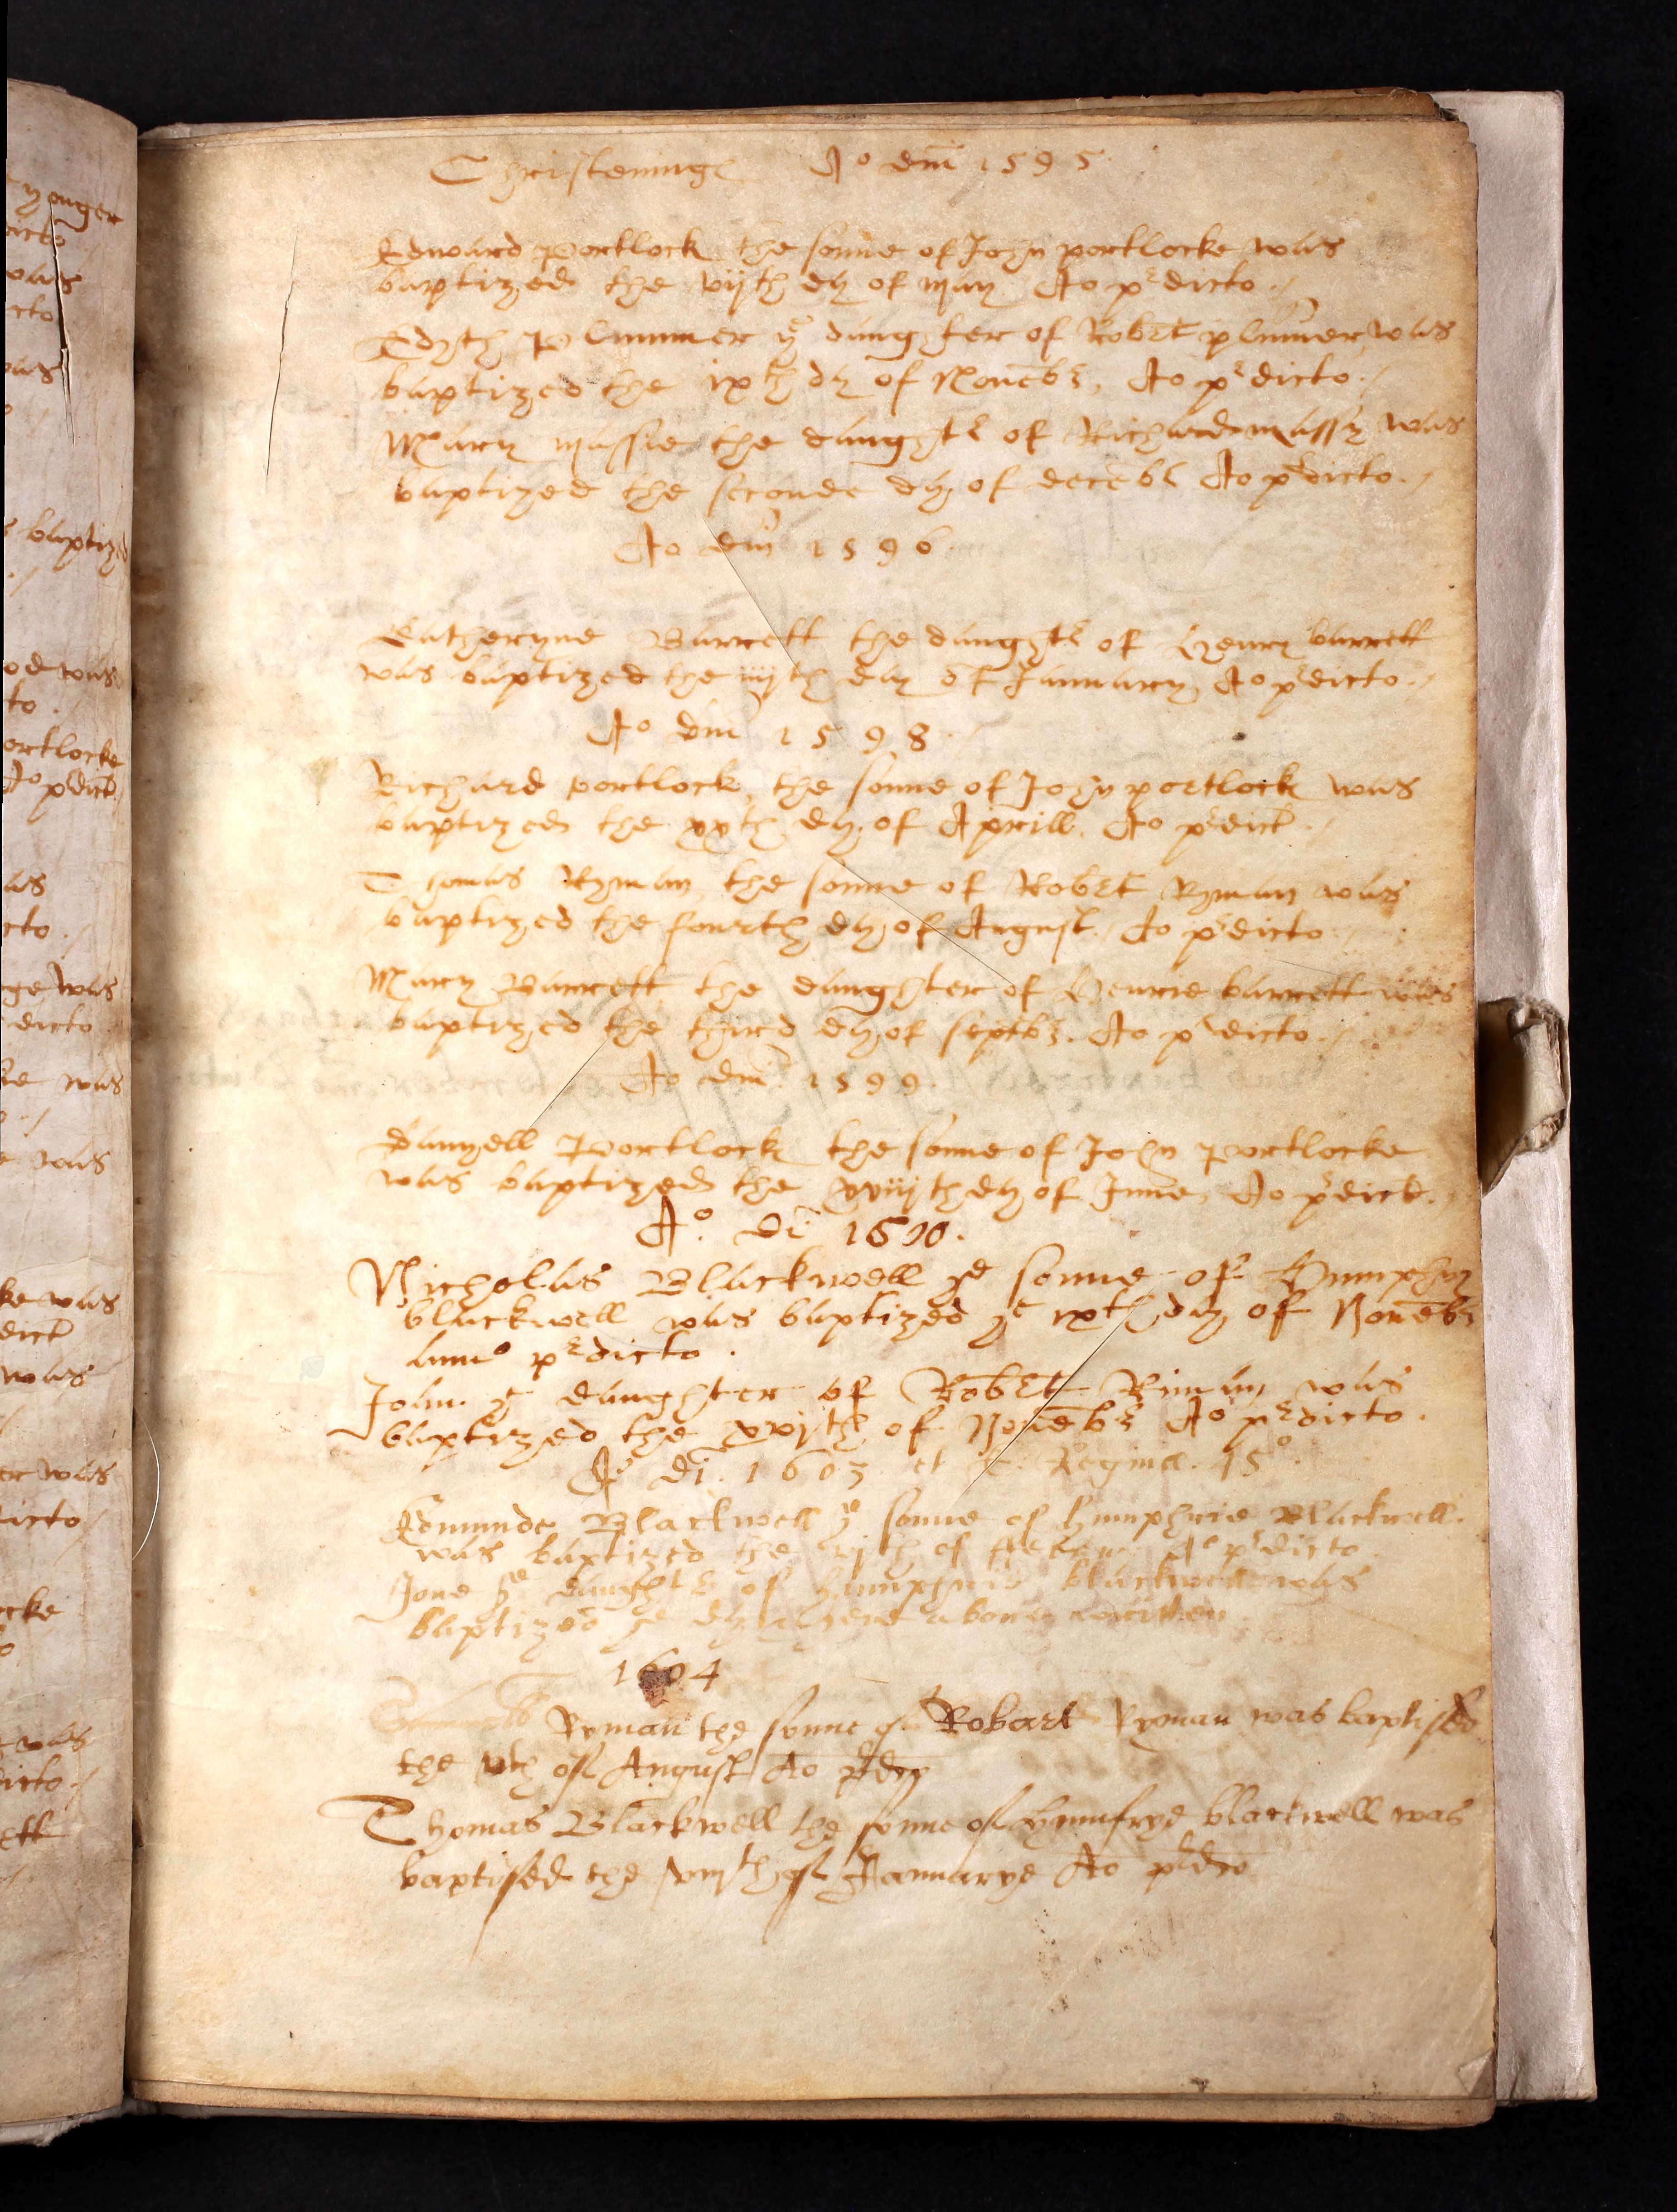 Christeninge Ao dm 1595
Edward Portlock the sonne of John portlocke was
baptized the vijth dy of may Ao prdicto
Edyth Plummer ye daughter of Robert plumer was
baptized the ixth dy of Novebr, Ao prdicto
Mary Massie the daughtr of Richard massy was
baptized the seconde dy of decebr Ao prdicto
Ao dm 1596
Katheryne Barrett the daughtr of Henry barrett
was baptized the iiijth day of January Ao prdicto
Ao dm 1598
Richard portlock the sonne of John portlock was
baptized the xxth dy of Aprill Ao prdict
Thomas Ryman the sonne of Robert Ryman was
baptized the fourth dy of August Ao prdicto
Mary Barrett the daughter of Henrie barrett was
baptized the third dy of septbr. Ao prdicto
Ao dm 1599
Danyell Portlock the sonne of John Portlocke
was baptized the xviijth dy of June Ao prdict.
Ao. di 1600.
Nicholas Blackwell ye sonne of Humphry
blackwell was baptized ye ixth day of Novebr
anno prdicto.
Joan ye daughter of Robert Riman was
baptized the xvjth of Novebr Ao prdicto.
Ao di. 1603 et Regina. 45o
Edmunde Blackwell ye sonne of humphrie Blackwell
was baptized the of Ao prdicto
Jone ye daughtr of humphrie blackwell was
baptized ye dy & yere above written
1604
Ryman the sonne of Robart Ryman was baptised
the vth of August Ao prdco
Thomas Blackwell the sonne of humfrye blackwell was
baptised the of Januarye Ao prdco
yonger
dicto
was
cto
was
baptized
od was
to
ortlocke
Ao prdict
as
cto
ge was
dicto
ke was
was
ke was
dict
was
er was
dicto
ocke
was
dicto
ett